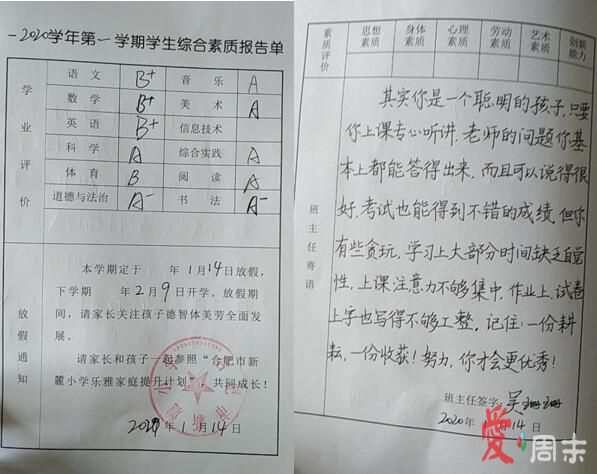 -2020学年第一学期学生综合素质报告单
学业评价
语文 B+ 音乐 A
数学 B+ 美术 A
英语 B+ 信息技术
科学 A 综合实践 A
体育 B 阅读 A
道德与法治 A- 书法 A-
放假通知
本学期定于 年1月14日放假,
下学期 年2月9日开学。放假期
间,请家长关注孩子德智体美劳全面发
展。
请家长和孩子一起参照“合肥市新
麓小学乐雅家庭提升计划”,共同成长!
年1月14日
素质评价
思想素质 身体素质 心理素质 劳动素质 艺术素质 创新能力
班主任寄语
其实你是一个聪明的孩子,只要
你上课专心听讲,老师的问题你基
本上都能答得出来,而且可以说得很
好,考试也能得到不错的成绩,但你
有些贪玩,学习上大部分时间缺乏自觉
性,上课注意力不够集中,作业上,试卷
上字也写得不够工整,记住:一份耕
耘,一份收获!努力,你才会更优秀!
班主任签字:吴
2020年 月14日
愛周末